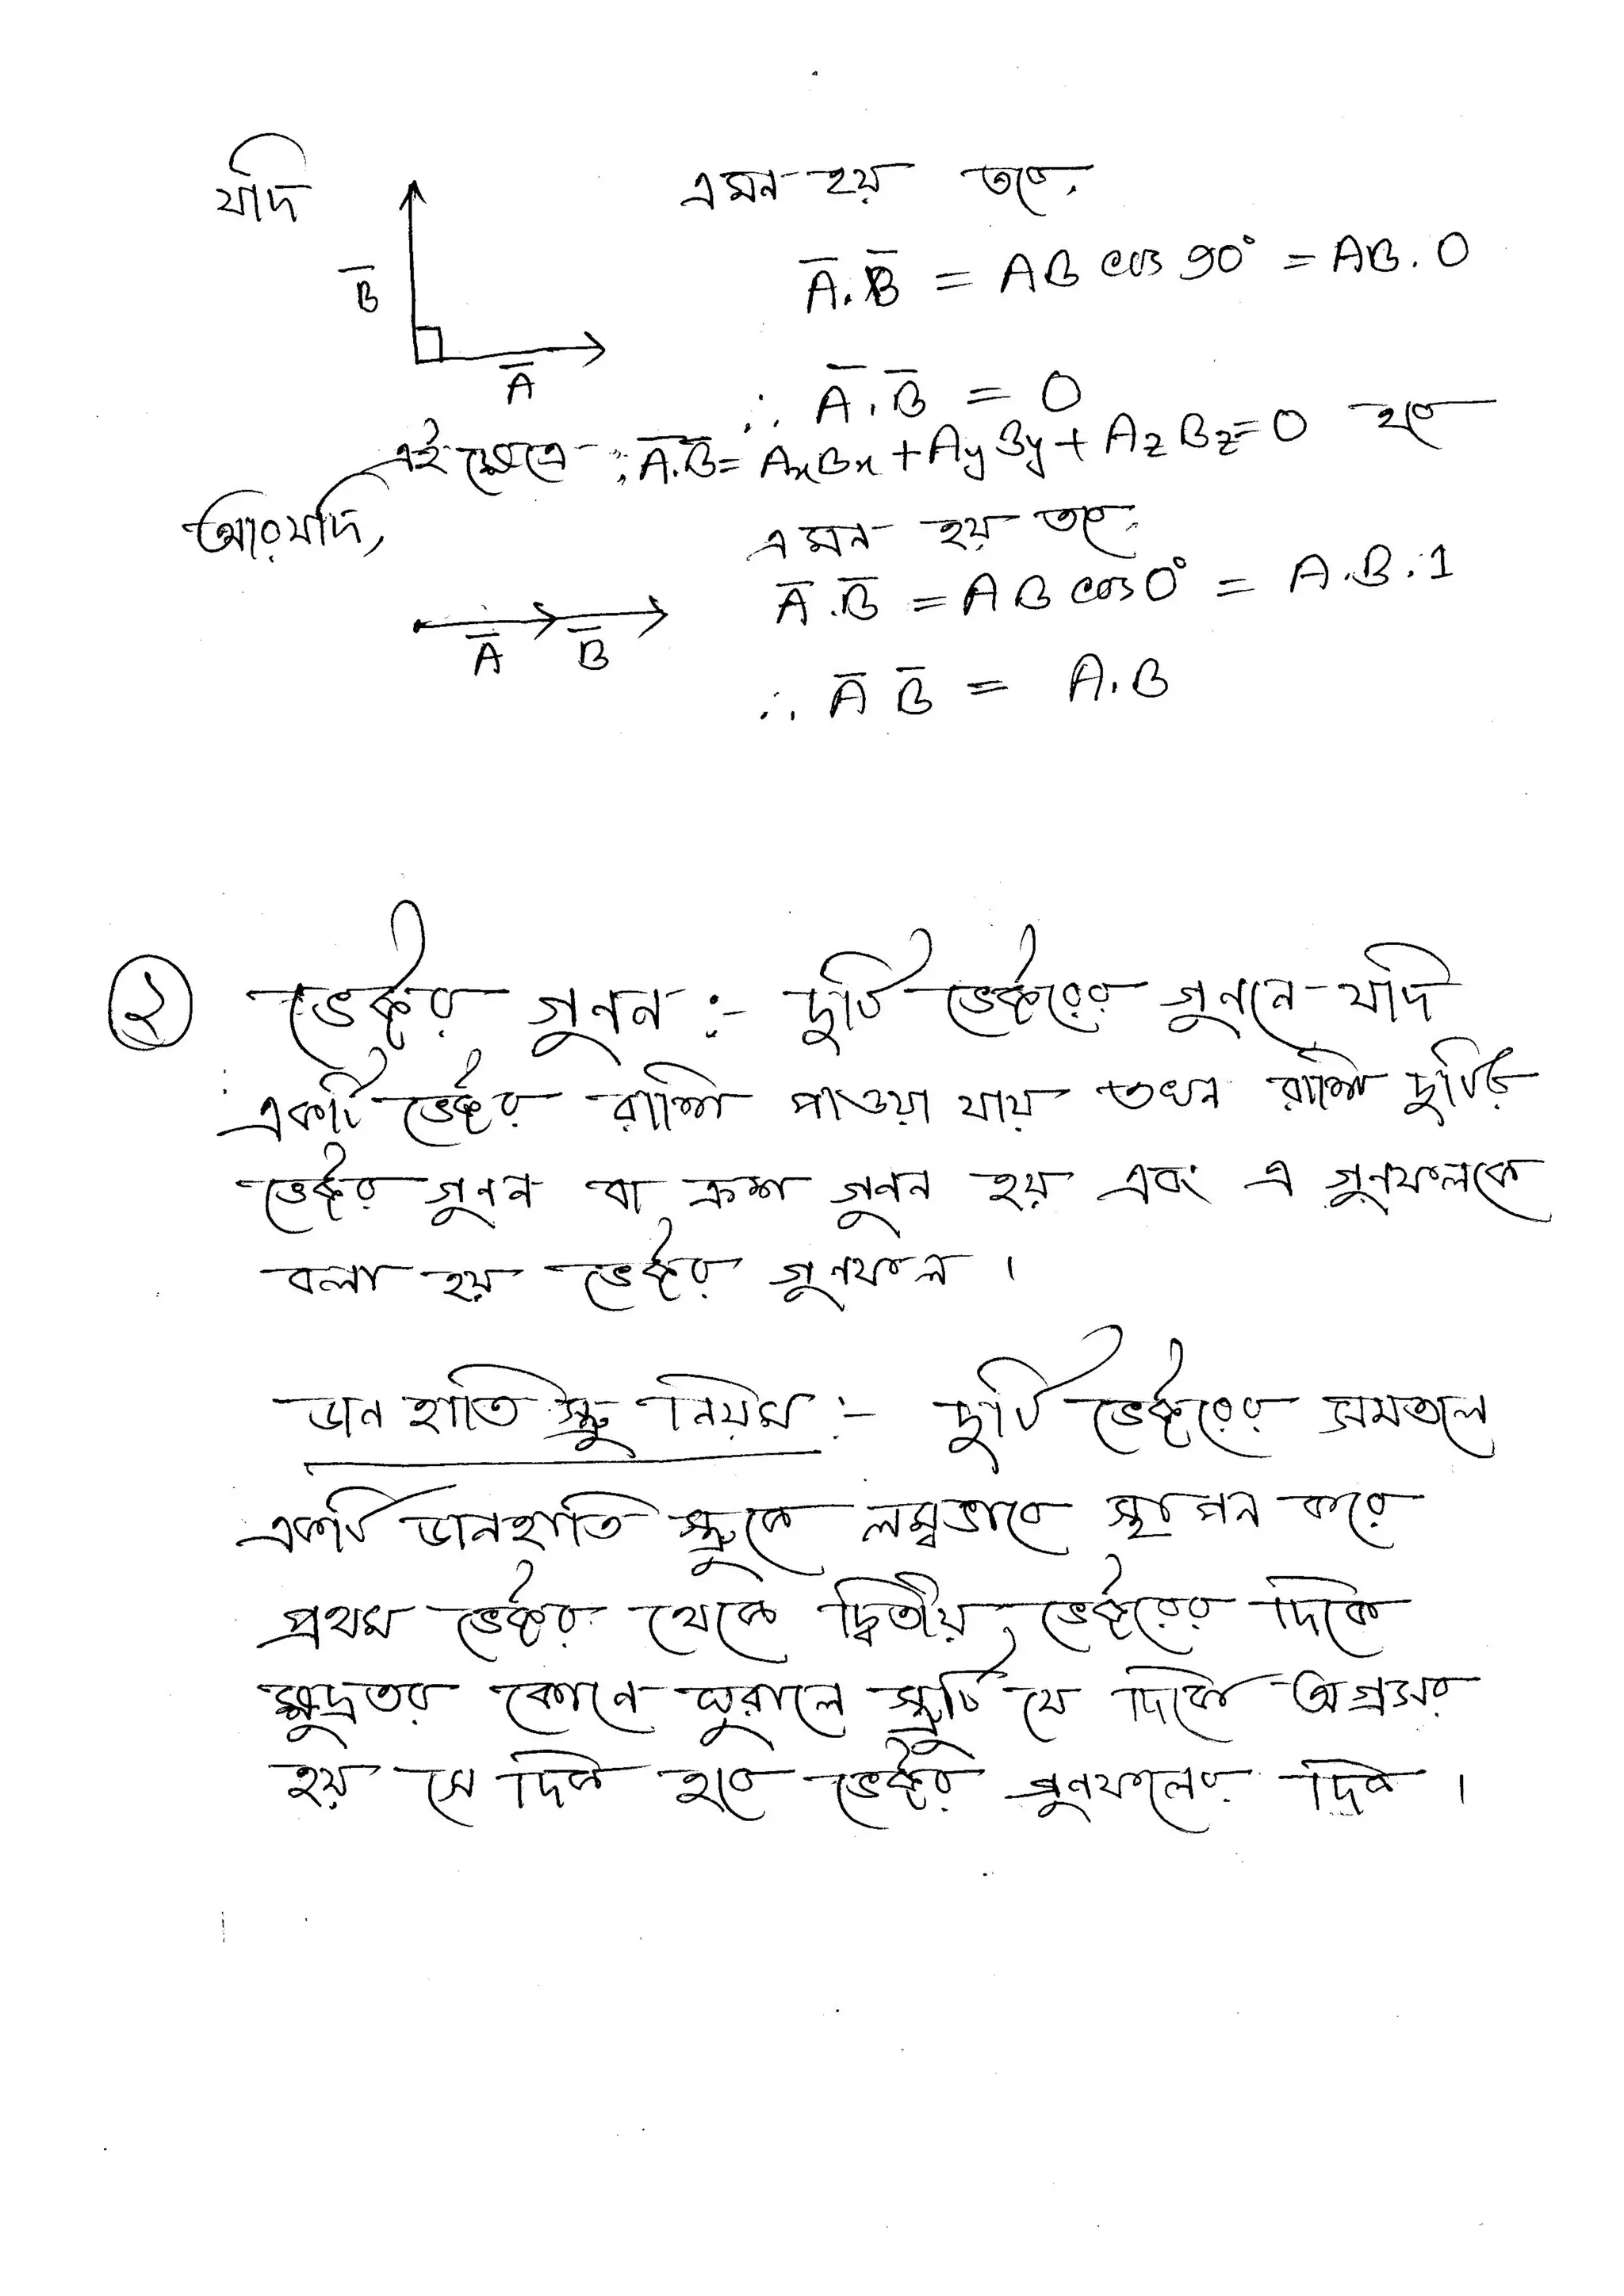 যদি এমন হয় তবে,
B̅
A̅.B̅ = AB cos 90° = AB. 0
A̅
∴ A̅.B̅ = 0
এই ক্ষেত্রে ∴ A̅.B̅ = AxBx + AyBy + AzBz = 0 হবে
আর যদি, এমন হয় তবে,
A̅.B̅ = AB cos 0° = A.B.1
A̅ B̅
∴ A̅ B̅ = A.B
২ ভেক্টর গুনন :- দুটি ভেক্টরের গুননে যদি
একটি ভেক্টর রাশি পাওয়া যায় তখন রাশি দুটির
ভেক্টর গুনন বা ক্রশ গুনন হয় এবং এ গুনফলকে
বলা হয় ভেক্টর গুনফল ।
ডান হাতি স্ক্রু নিয়ম :- দুটি ভেক্টরের সমতলে
একটি ডানহাতি স্ক্রুকে লম্বভাবে স্থাপন করে
প্রথম ভেক্টর থেকে দ্বিতীয় ভেক্টরের দিকে
ক্ষুদ্রতর কোনে ঘুরালে স্ক্রুটি যে দিকে অগ্রসর
হয় সে দিক হবে ভেক্টর গুনফলের দিক ।